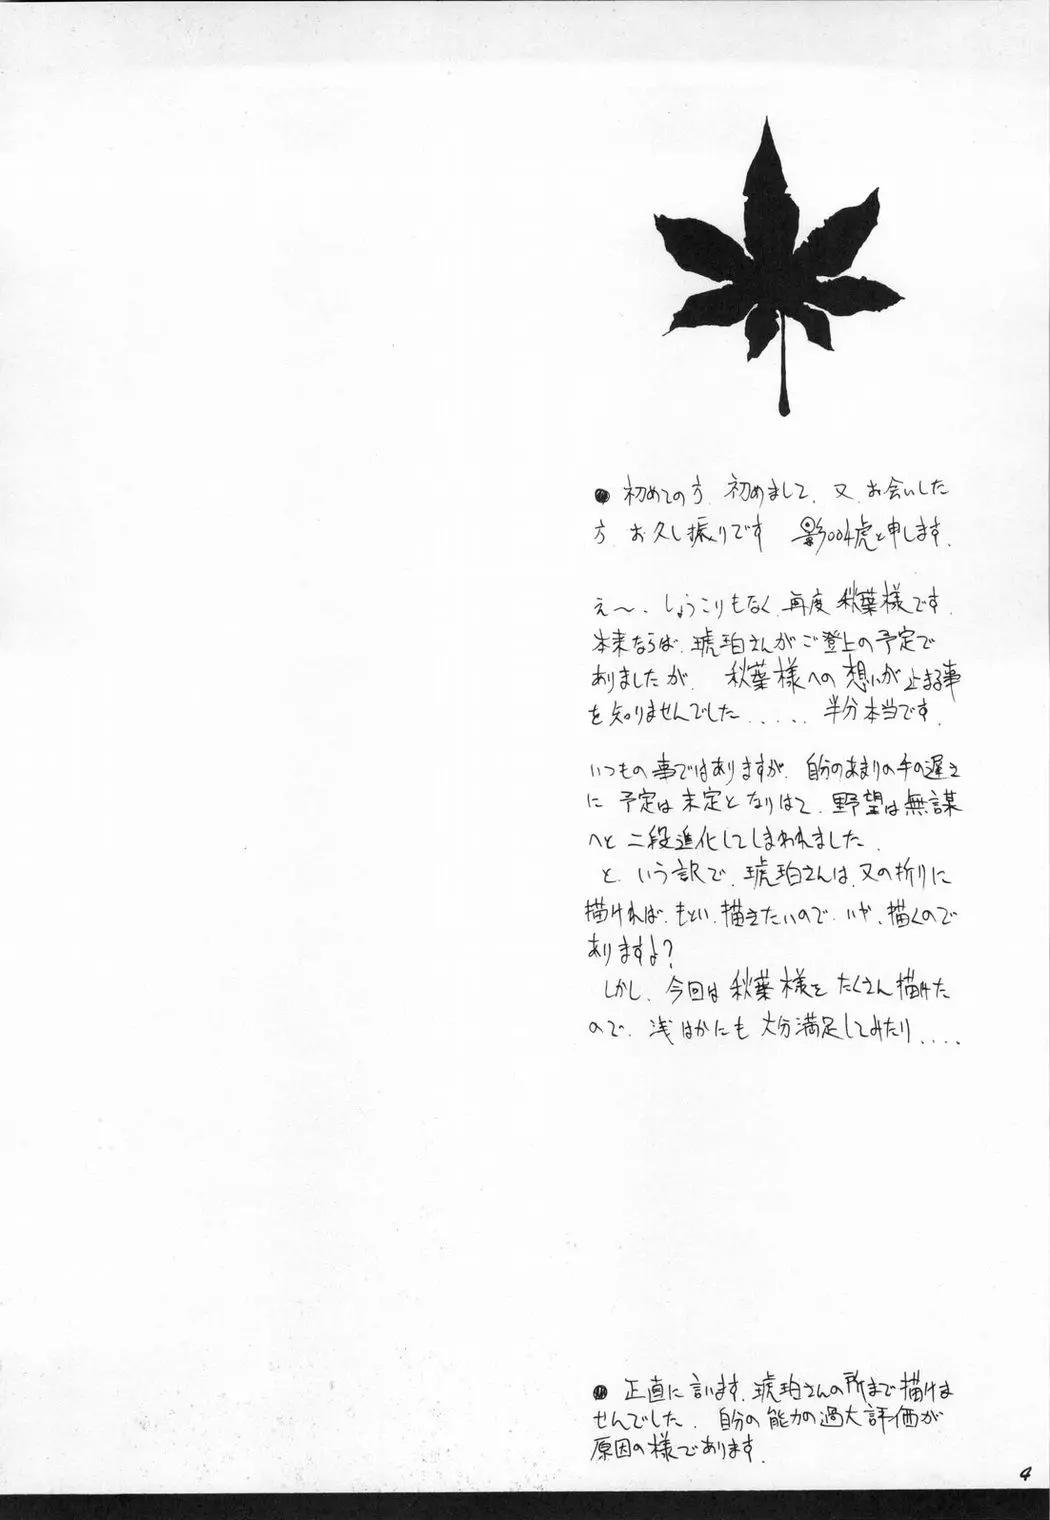 ● 初めての方、初めまして、又、お会いした
方、お久し振りです 影004虎と申します。
え〜、しょうこりもなく、再度 秋葉様です。
本来ならば、琥珀さんがご登上の予定で
ありましたが、秋葉様への想いが止まる事
を知りませんでした..... 半分本当です。
いつもの事ではありますが、自分のあまりの手の遅さ
に 予定は未定となりはて、野望は無謀
へと 二段進化してしまわれました。
と、いう訳で、琥珀さんは、又の折りに
描ければ、もとい、描きたいので、いや、描くので
ありますよ?
しかし、今回は秋葉様を たくさん描けた
ので、浅はかにも 大分満足してみたり....
● 正直に言います、琥珀さんの所まで描けま
せんでした、自分の能力の過大評価が
原因の様であります。
4